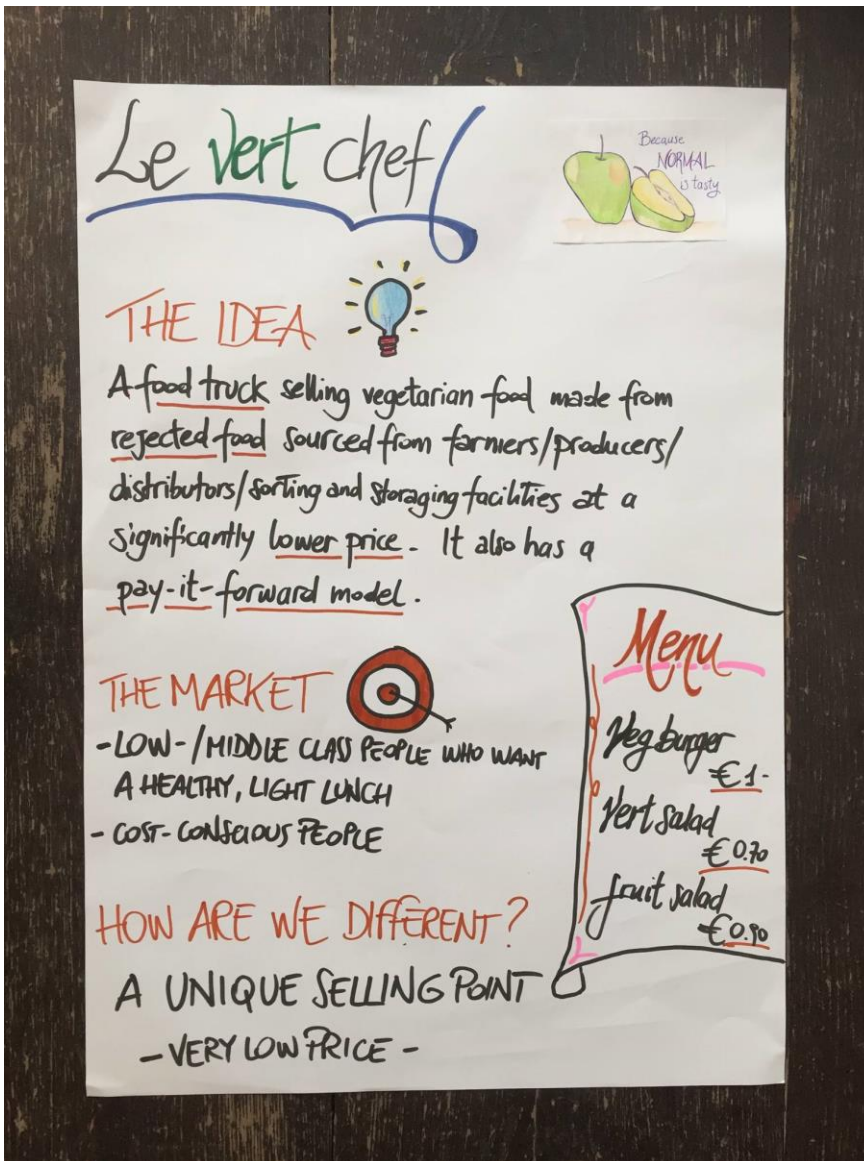 Le vert chef
Because
NORMAL
is tasty
THE IDEA
A food truck selling vegetarian food made from
rejected food sourced from farmers/producers/
distributors/sorting and storaging facilities at a
significantly lower price. It also has a
pay-it-forward model.
THE MARKET
- LOW-/MIDDLE CLASS PEOPLE WHO WANT
A HEALTHY, LIGHT LUNCH
- COST-CONSCIOUS PEOPLE
HOW ARE WE DIFFERENT?
A UNIQUE SELLING POINT
- VERY LOW PRICE -
Menu
Veg burger
€1-
Vert salad
€0.70
fruit salad
€0.90